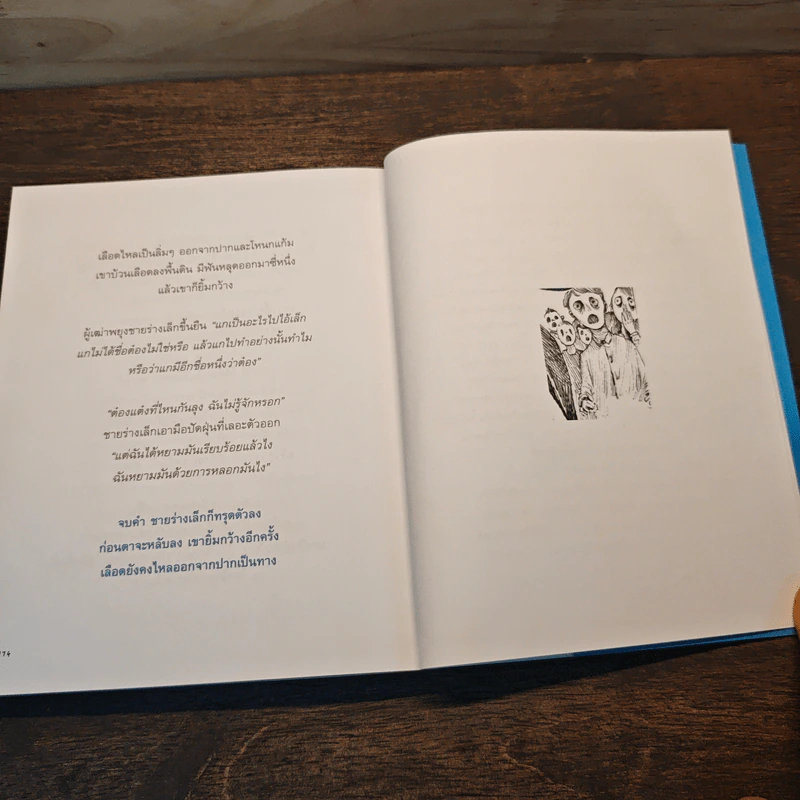 เลือดไหลเป็นลิ่มๆ ออกจากปากและโหนกแก้ม
เขาบ้วนเลือดลงพื้นดิน มีฟันหลุดออกมาซี่หนึ่ง
แล้วเขาก็ยิ้มกว้าง
ผู้เฒ่าพยุงชายร่างเล็กขึ้นยืน “แกเป็นอะไรไปไอ้เล็ก
แกไม่ได้ชื่อต๋องไม่ใช่หรือ แล้วแกไปทำอย่างนั้นทำไม
หรือว่าแกมีอีกชื่อหนึ่งว่าต๋อง”
“ต๋องแต๋งที่ไหนกันลุง ฉันไม่รู้จักหรอก”
ชายร่างเล็กเอามือปัดฝุ่นที่เลอะตัวออก
“แต่ฉันได้หยามมันเรียบร้อยแล้วไง
ฉันหยามมันด้วยการหลอกมันไง”
จบคำ ชายร่างเล็กก็ทรุดตัวลง
ก่อนตาจะหลับลง เขายิ้มกว้างอีกครั้ง
เลือดยังคงไหลออกจากปากเป็นทาง